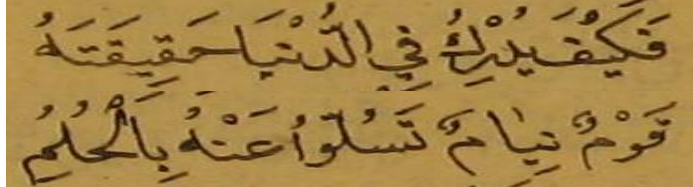 فَكَيْفَ يُدْرِكُ فِي الدُّنْيَا حَقِيقَتَهُ
قَوْمٌ نِيَامٌ تَسَلَّوْا عَنْهُ بِالْحُلُمِ